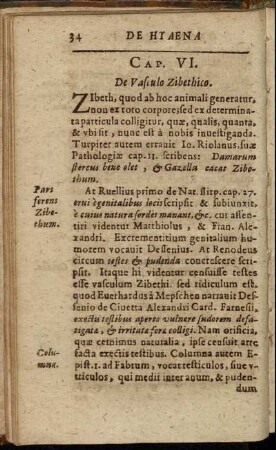 34 DE HYAENA
CAP. VI.
De Vasculo Zibethico.
ZIbeth, quod ab hoc animali generatur,
non ex toto corpore, sed ex determina-
ta particula colligitur, quæ, qualis, quanta,
& vbi sit, nunc est à nobis inuestiganda.
Turpiter autem errauit Io. Riolanus. suæ
Pathologiæ cap. 11. scribens: Damarum
stercus bene olet, & Gazella cacat Zibe-
thum.
Pars
ferens
Zibe-
thum.
At Ruellius primo de Nat. stirp. cap. 27.
erui è genitalibus locis scripsit & subiunxit,
è cuius natura sordes manant, &c. cui assen-
tiri videntur Matthiolus, & Fian. Ale-
xandri. Excrementitium genitalium hu-
morem vocauit Dessenius. At Renodeus
circum testes & pudenda concrescere scri-
psit. Itaque hi videntur censuisse testes
esse vasculum Zibethi. sed ridiculum est.
quod Euerhardus à Mepschen narrauit Des-
senio de Ciuetta Alexandri Card. Farnesii,
exectis testibus aperto vulnere sudorem defa-
tigata, & irritata fera colligi. Nam orificia,
quæ cernimus naturalia, ipse censuit arte
facta exectis testibus. Columna autem E-
Colu-
mna.
pist. 1. ad Fabrum, vocat testiculos, siue v-
triculos, qui medii inter anum, & puden-
dum